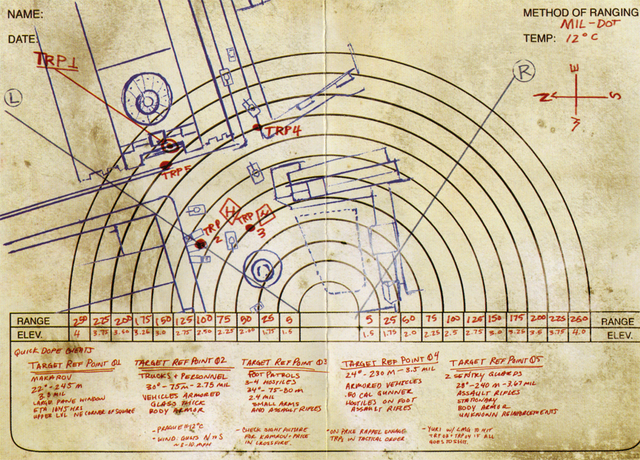 NAME:
METHOD OF RANGING
MIL-DOT
DATE
TEMP: 12°C
TRP1
L
R
E
N S
TRP4
TRP5
H
TRP
2
TRP
3
RANGE 250 225 200 175 150 125 100 75 50 25 5 5 25 50 75 100 125 150 175 200 225 250
ELEV. 4 3.75 3.5 3.25 3.0 2.75 2.50 2.25 2.00 1.75 1.5 1.5 1.75 2.0 2.25 2.5 2.75 3.0 3.25 3.5 3.75 4.0
QUICK DOPE CHEATS
TARGET REF POINT 01
MAKAROV
22° - 245 M
LARGE PANE WINDOW
UPPER LVL NE CORNER OF SQUARE
TARGET REF POINT 02
TRUCKS + PERSONNEL
30° - 75 M - 2.75 MIL
VEHICLES ARMORED
GLASS THICK
BODY ARMOR
- PRAGUE = 12°C
- WIND: GUSTS N TO S
~ 5-10 MPH
TARGET REF POINT 03
FOOT PATROLS
3-4 HOSTILES
34° - 75-80 M
2.4 MIL
SMALL ARMS
AND ASSAULT RIFLES
- CHECK SIGHT PICTURE
FOR KAMAROV + PRICE
IN CROSSFIRE.
TARGET REF POINT 04
24° - 230 M - 3.5 MIL
ARMORED VEHICLES
.50 CAL GUNNER
HOSTILES ON FOOT
ASSAULT RIFLES
- ON PRICE RAPPEL ENGAGE
TRPs IN TACTICAL ORDER.
TARGET REF POINT 05
2 SENTRY GUARDS
28° - 240 M - 3.67 MIL
ASSAULT RIFLES
STATIONARY
BODY ARMOR
UNKNOWN REINFORCEMENTS
- YURI w/ LMG TO HIT
IF IT ALL
GOES TO SHIT.